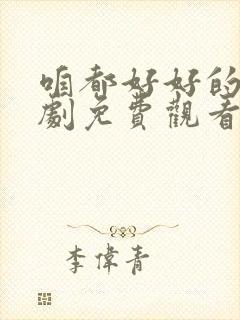 咱都好好的
劇免費觀看
李偉青